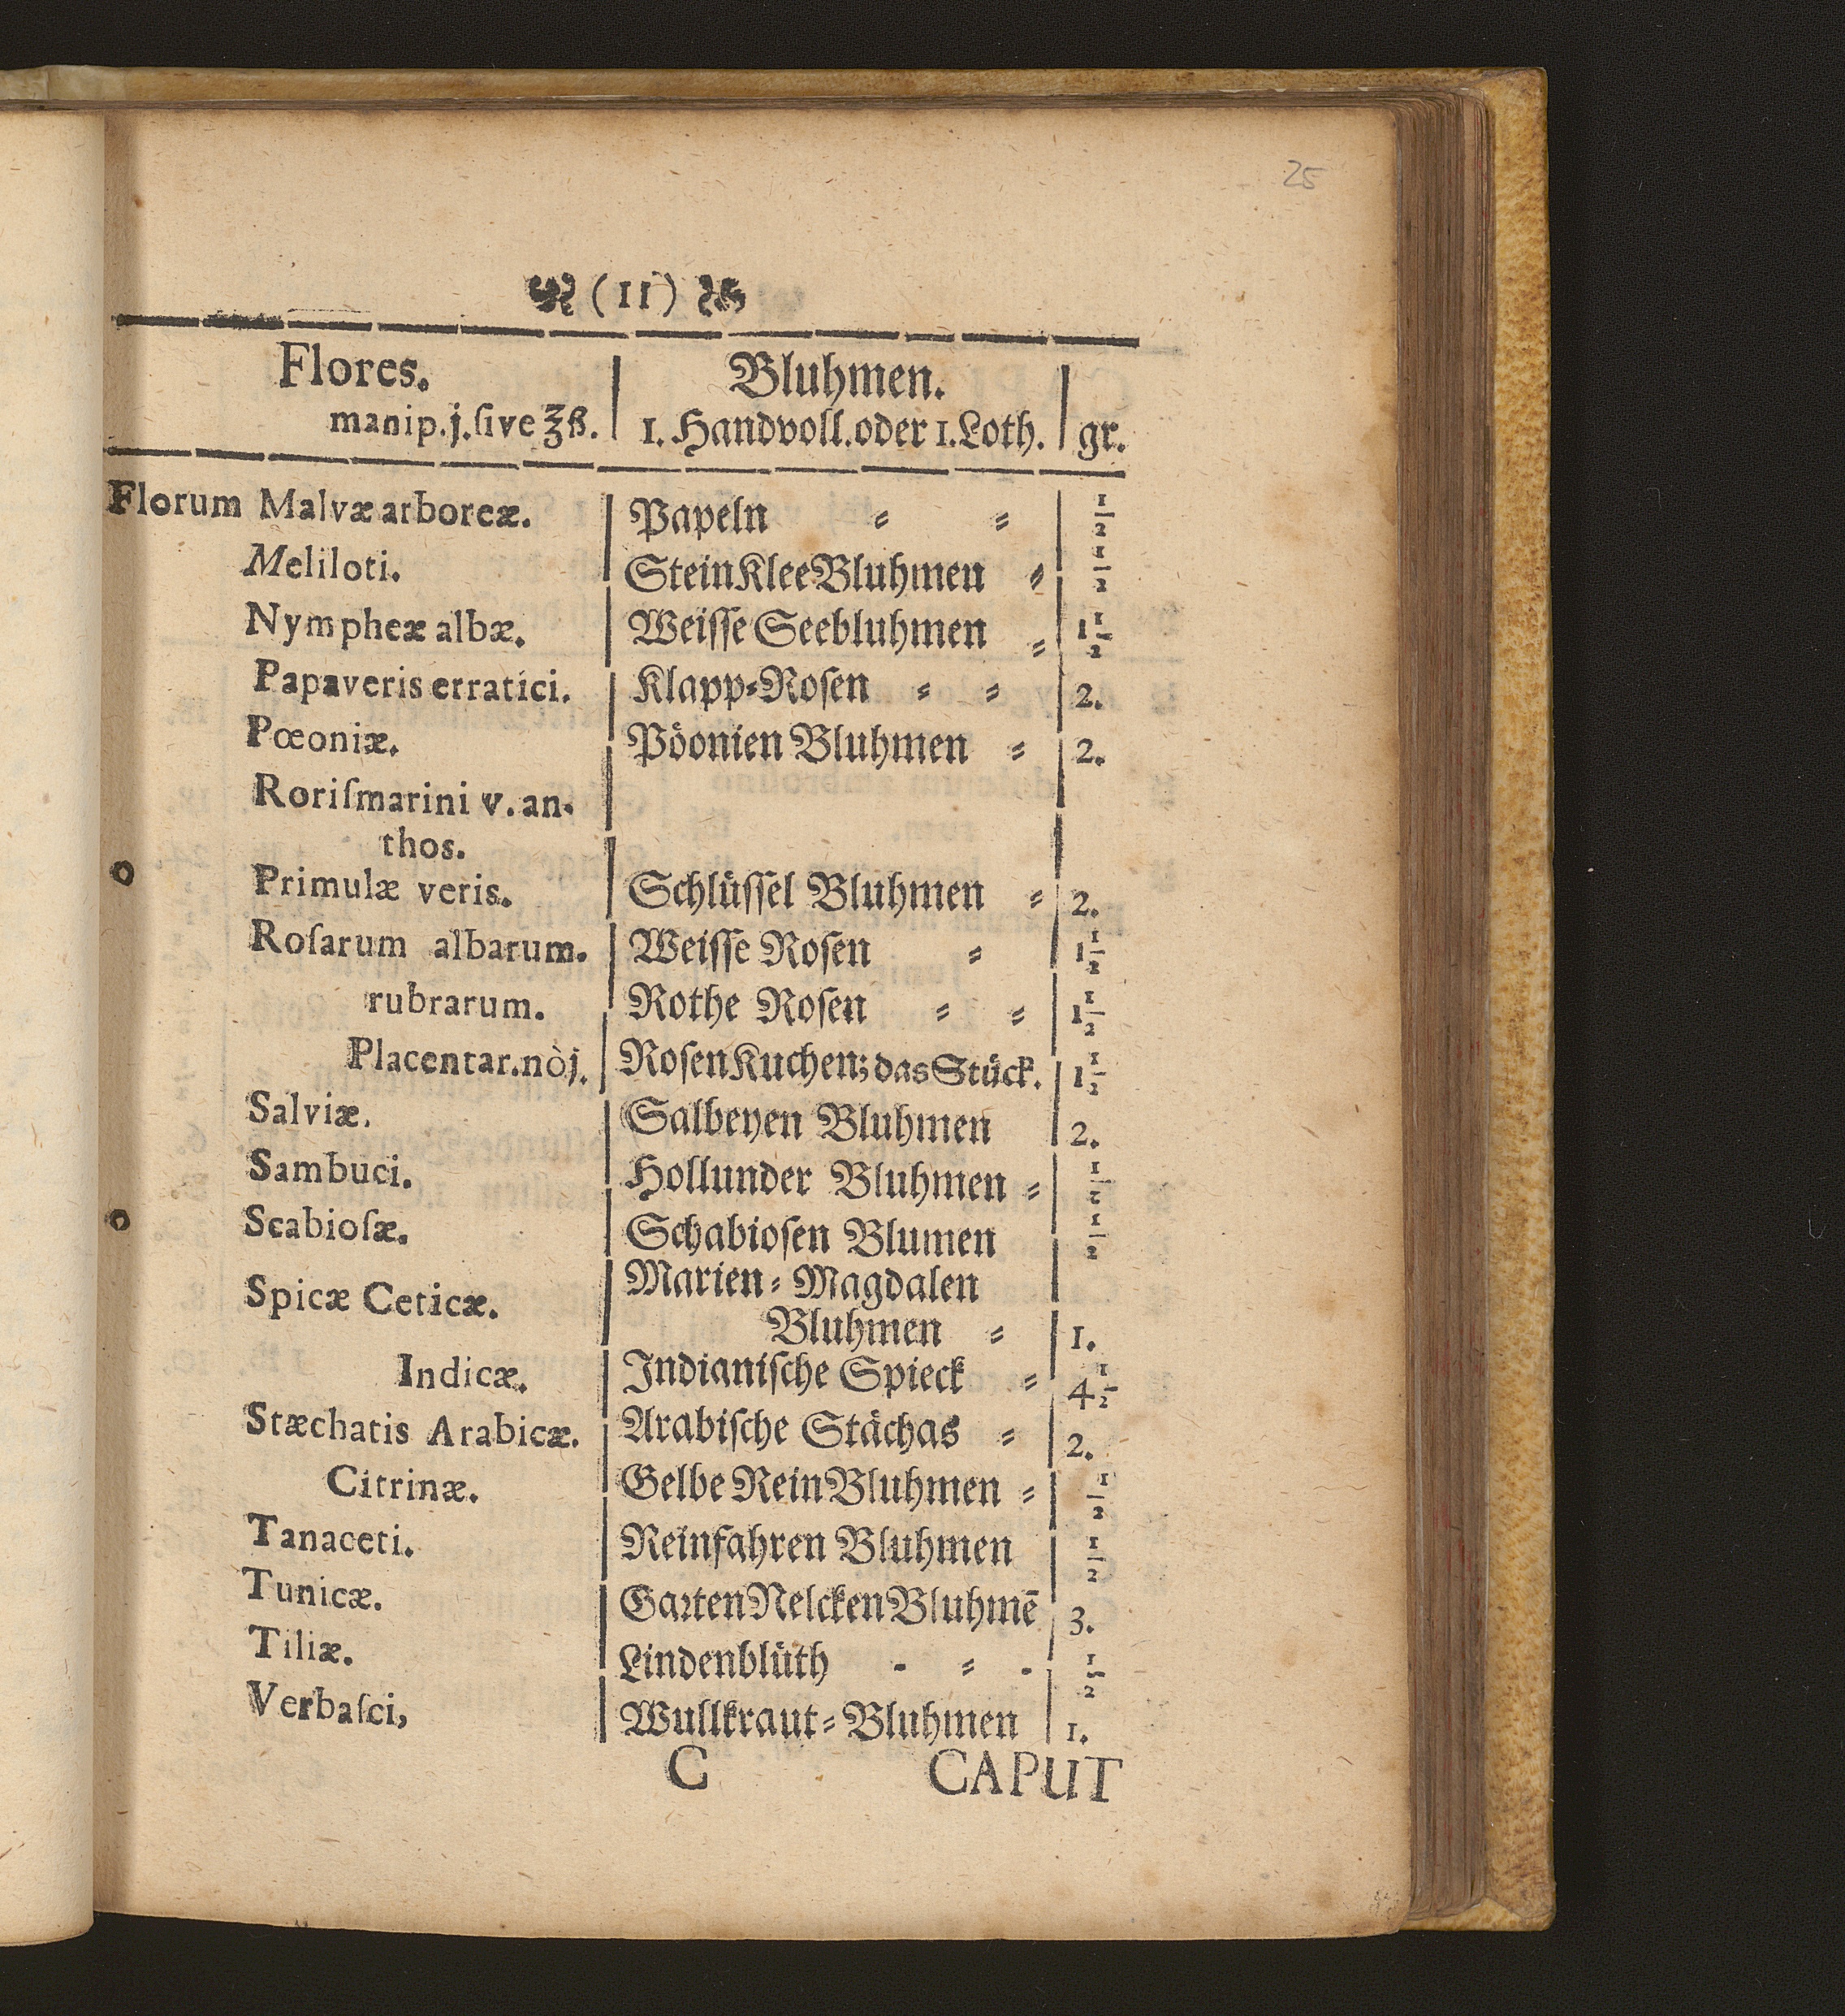 25
(11)
Flores. Bluhmen.
manip.j.ſive ʒß. 1. Handvoll.oder 1.Loth. gr.
Florum Malvæ arboreæ. Papeln ⸗ ⸗ 1/2
Meliloti. SteinKleeBluhmen ⸗ 1/2
Nympheæ albæ. Weiſſe Seebluhmen ⸗ 1 1/2
Papaveris erratici. Klapp⸗Roſen ⸗ ⸗ 2.
Pœoniæ. Pöonien Bluhmen ⸗ 2.
Roriſmarini v. an-
thos.
Primulæ veris. Schlüſſel Bluhmen ⸗ 2.
Roſarum albarum. Weiſſe Roſen ⸗ 1 1/2
rubrarum. Rothe Roſen ⸗ ⸗ 1 1/2
Placentar.nòj. RoſenKuchen; das Stück. 1 1/2
Salviæ. Salbeyen Bluhmen 2.
Sambuci. Hollunder Bluhmen ⸗ 1/2
Scabioſæ. Schabioſen Blumen 1/2
Spicæ Ceticæ. Marien⸗Magdalen
Bluhmen ⸗ 1.
Indicæ. Indianiſche Spieck ⸗ 4 1/2
Stæchatis Arabicæ. Arabiſche Stächas ⸗ 2.
Citrinæ. Gelbe ReinBluhmen ⸗ 1/2
Tanaceti. Reinfahren Bluhmen 1/2
Tunicæ. GartenNelckenBluhmē 3.
Tiliæ. Lindenblüth - ⸗ - 1/2
Verbaſci, Wullkraut⸗Bluhmen 1.
C CAPUT